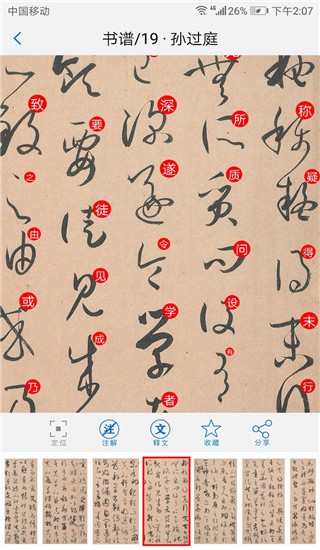 中国移动 4G 26% 下午2:07
书谱/19 · 孙过庭
称疑得末行
所质问设有
深遂令学者
要徒见成
致之由或乃
定位 注解 释文 收藏 分享
注 文